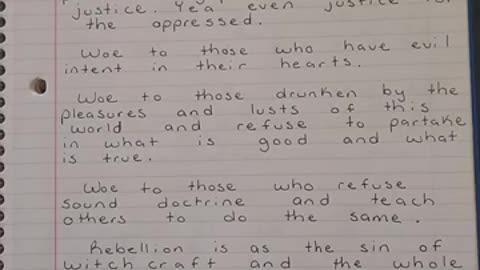 justice. Yea, even justice for
the oppressed.
Woe to those who have evil
intent in their hearts.
Woe to those drunken by the
pleasures and lusts of this
world and refuse to partake
in what is good and what
is true.
Woe to those who refuse
sound doctrine and teach
others to do the same.
Rebellion is as the sin of
witch craft and the whole